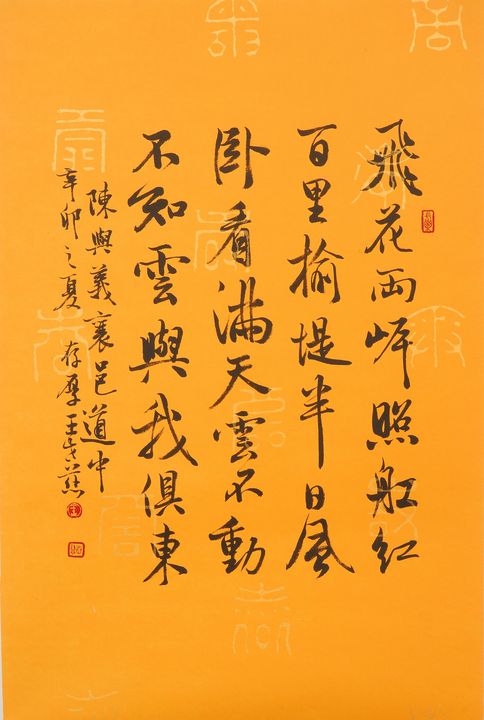 飛花兩岸照船紅
百里榆堤半日風
卧看滿天雲不動
不知雲與我俱東
陳與義襄邑道中
辛卯之夏 存摩王